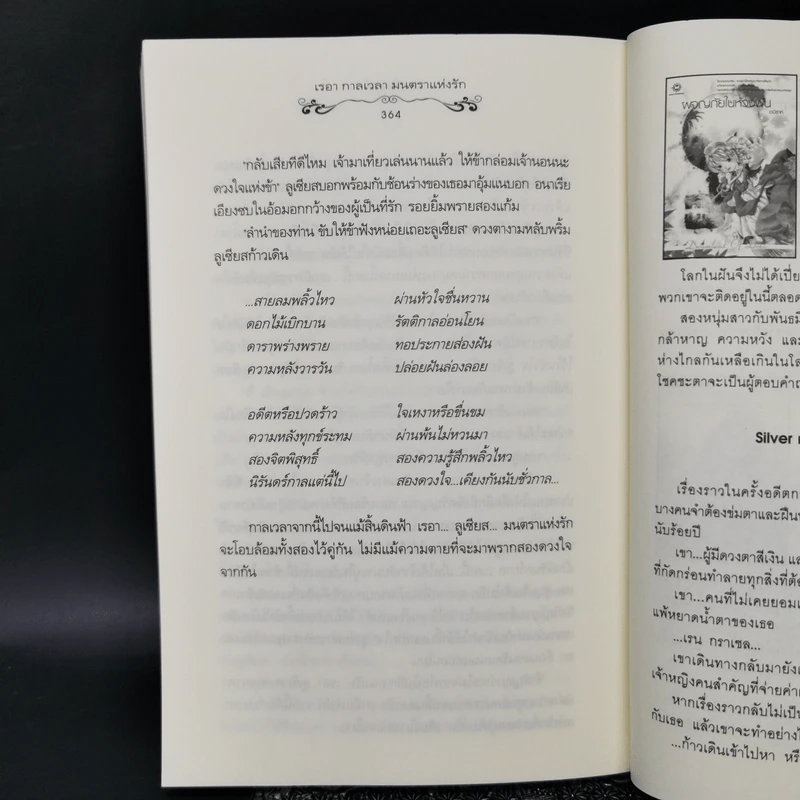 เรอา กาลเวลา มนตราแห่งรัก
364
"กลับเสียทีดีไหม เจ้ามาเที่ยวเล่นนานแล้ว ให้ข้ากล่อมเจ้านอนนะ
ดวงใจแห่งข้า" ลูเซียสบอกพร้อมกับช้อนร่างของเธอมาอุ้มแนบอก อนาเรีย
เอียงซบในอ้อมอกกว้างของผู้เป็นที่รัก รอยยิ้มพรายสองแก้ม
"ลำนำของท่าน ขับให้ข้าฟังหน่อยเถอะลูเซียส" ดวงตางามหลับพริ้ม
ลูเซียสก้าวเดิน
...สายลมพลิ้วไหว ผ่านหัวใจชื่นหวาน
ดอกไม้เบิกบาน รัตติกาลอ่อนโยน
ดาราพร่างพราย ทอประกายส่องฝัน
ความหลังวารวัน ปล่อยฝันล่องลอย
อดีตหรือปวดร้าว ใจเหงาหรือขื่นขม
ความหลังทุกข์ระทม ผ่านพ้นไม่หวนมา
สองจิตพิสุทธิ์ สองความรู้สึกพลิ้วไหว
นิรันดร์กาลแต่นี้ไป สองดวงใจ...เคียงกันนับชั่วกาล...
กาลเวลาจากนี้ไปจนแม้สิ้นดินฟ้า เรอา... ลูเซียส... มนตราแห่งรัก
จะโอบล้อมทั้งสองไว้คู่กัน ไม่มีแม้ความตายที่จะมาพรากสองดวงใจ
จากกัน
ผจญภัยในห้วงฝัน
โลกในฝันจึงไม่ได้เปี่ย
พวกเขาจะติดอยู่ในนี้ตลอด
สองหนุ่มสาวกับพันธมิ
กล้าหาญ ความหวัง และ
ห่างไกลกันเหลือเกินในโล
โชคชะตาจะเป็นผู้ตอบคำถ
Silver
เรื่องราวในครั้งอดีตตก
บางคนจำต้องข่มตาและฝืนท
นับร้อยปี
เขา...ผู้มีดวงตาสีเงิน แล
ที่กัดกร่อนทำลายทุกสิ่งที่ต้อ
เขา...คนที่ไม่เคยยอมแ
แพ้หยาดน้ำตาของเธอ
...เรน กราเซล...
เขาเดินทางกลับมายัง
เจ้าหญิงคนสำคัญที่จ่ายค่า
หากเรื่องราวกลับไม่เป็น
กับเธอ แล้วเขาจะทำอย่างไ
...ก้าวเดินเข้าไปหา หรื